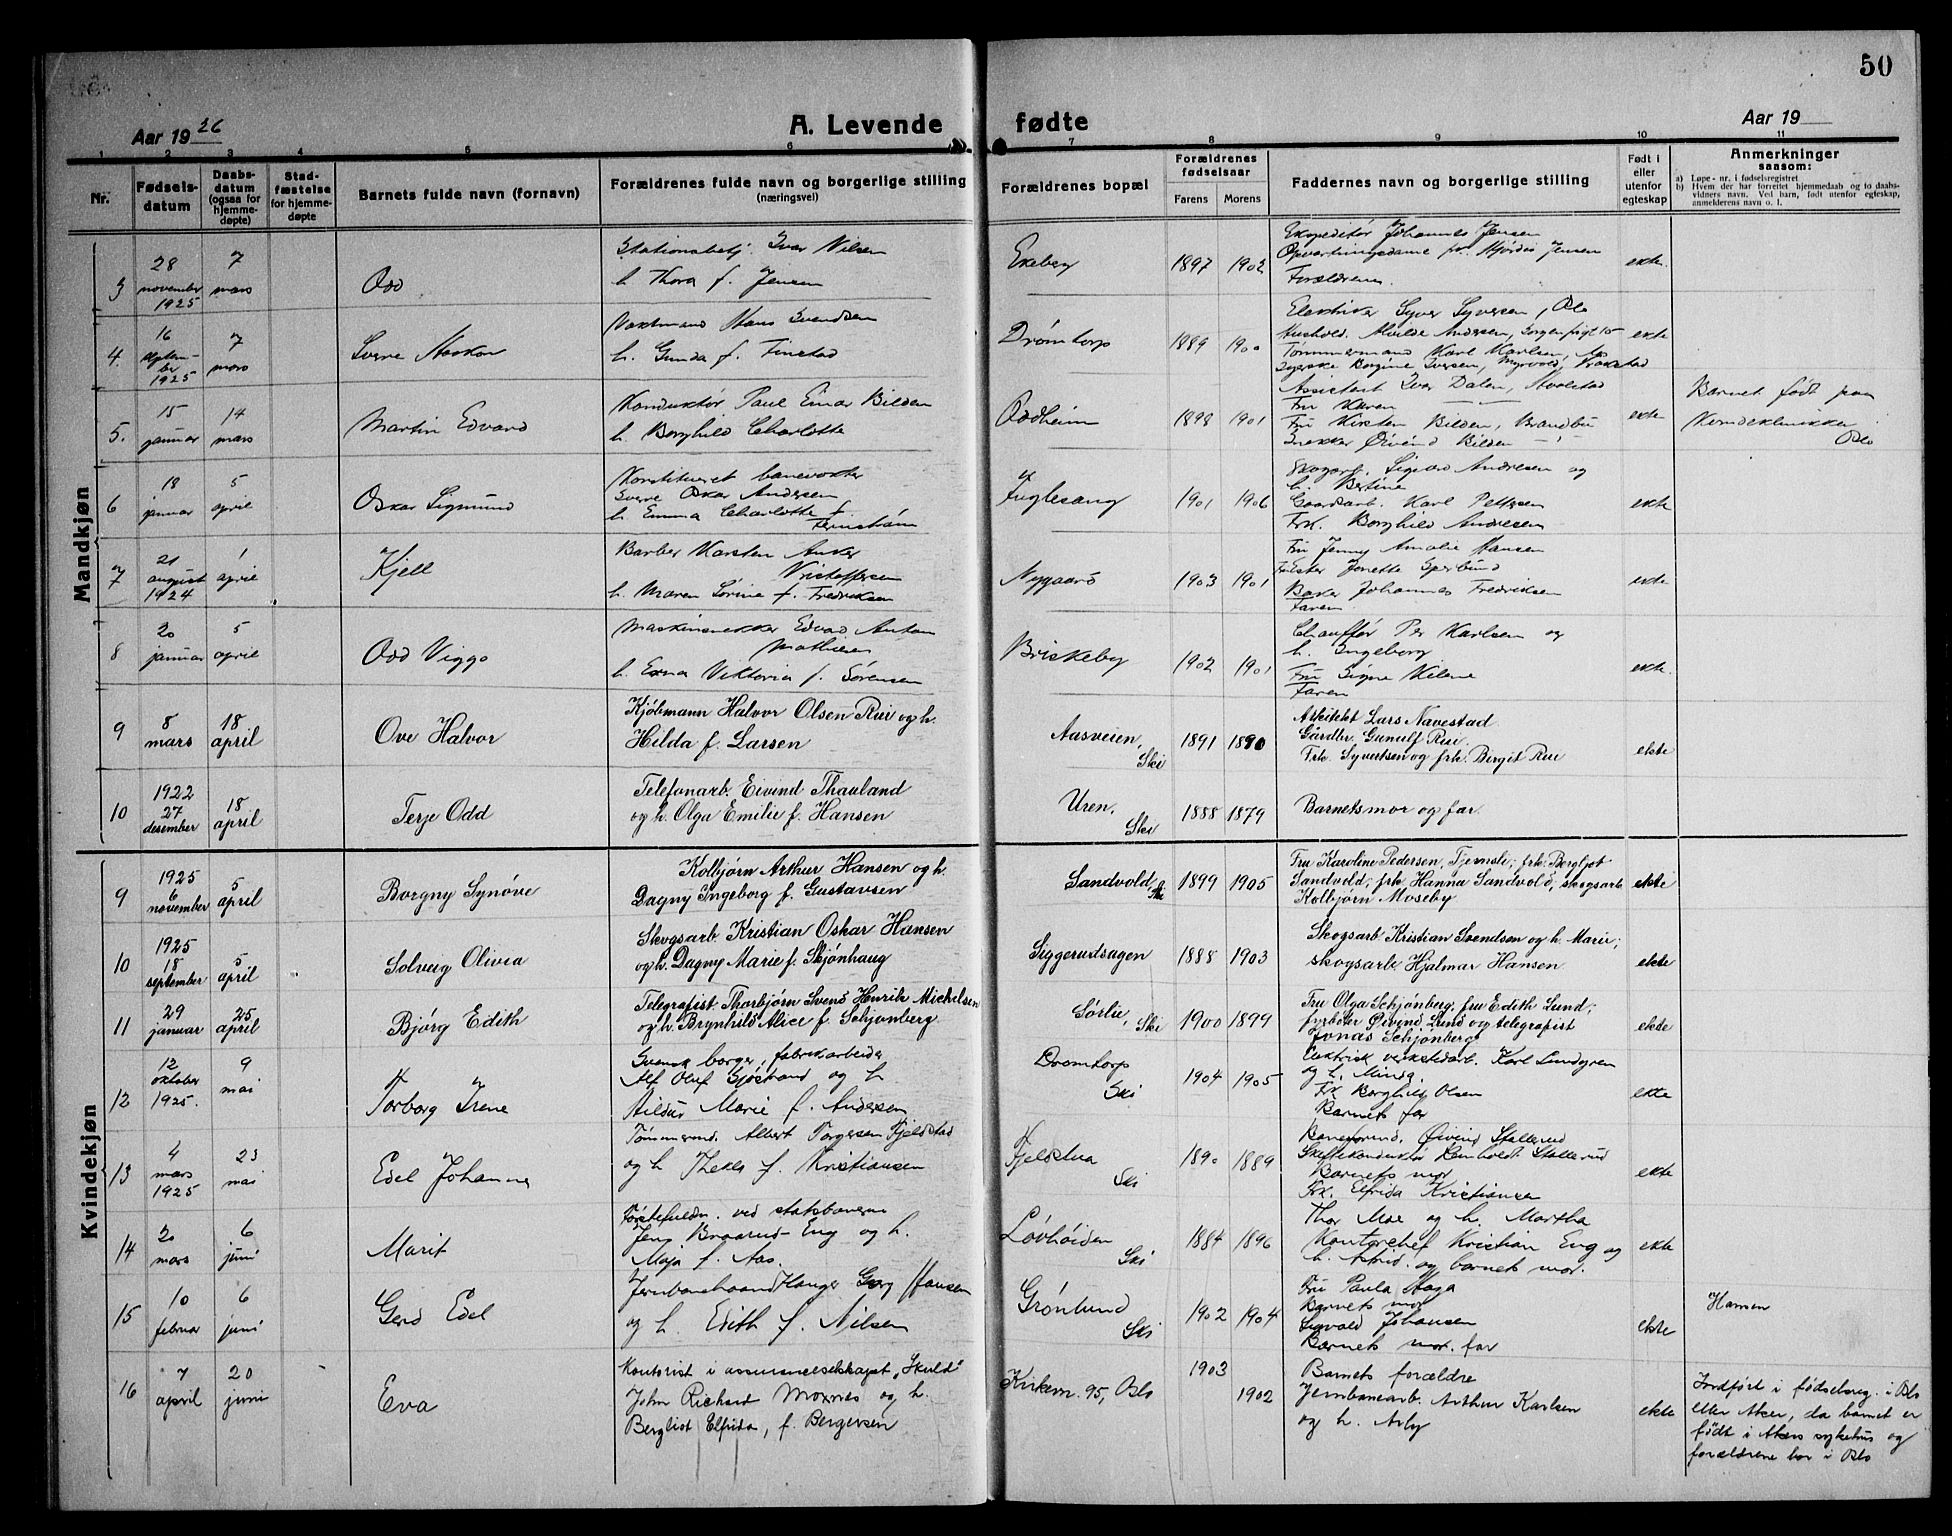 50
Aar 1926
A. Levende fødte
Aar 19
1 2 3 4 5 6 7 8 9 10 11
Nr.
Fødsels-
datum
Daabs-
datum
(ogsaa for
hjemme-
døpte)
Stad-
fæstelse
for hjemme-
døpte
Barnets fulde navn (fornavn)
Forældrenes fulde navn og borgerlige stilling
(næringsvei)
Forældrenes bopæl
Forældrenes
fødselsaar
Farens Morens
Faddernes navn og borgerlige stilling
Født i
eller
utenfor
egteskap
Anmerkninger
saasom:
a) Løpe-nr. i fødselsregistret
b) Hvem der har forrettet hjemmedaab og to daabs-
vidners navn. Ved barn, født utenfor egteskap,
anmelderens navn o. l.
Mandkjøn
3
28
november
1925
7
mars
Odd
Stationsbetj. Ivar Nilsen
h. Thora f. Jensen
Ekeberg
1897 1902
Ekspeditør Johannes Jensen
Opvartningsdame frk. Hjördis Jensen
Forældrene
ekte
4.
16
septem-
ber
1925
7
mars
Sverre Haakon
Vaktmand Hans Svendsen
h. Gunda f. Finstad
Drømtorp
1889 1900
Elektriker Syver Syversen, Oslo
Hushold. Hulde Andersen, Sorgenfrigt 10
Tømmermand Karl Karlsen, Ås
Syerske Borgine Iversen, Myrvold, Kraakstad
ekte
5.
15
januar
14
mars
Martin Edvard
Konduktør Paul Einar Bilden
h. Borghild Charlotte
Oddheim
1898 1901
Assistent Ivar Dalen, Hvalstad
Fru Karen
Fru Kirsten Bilden, Brandbu
Snekker Øivind Bilden
ekte
Barnet født paa
Kvindeklinikken
Oslo
6
18
januar
5
april
Oskar Sigmund
Konstitueret banevokter
Sverre Oskar Andersen
h. Emma Charlotte f.
Fernström
Fuglesang
1901 1906
Skogarb. Sigvard Andresen og
h. Bertine
Gaardsarb. Karl Pettersen
Frk. Borghild Andresen
ekte
7
21
august
1924
1
april
Kjell
Barber Karsten Anker
Kristoffersen
h. Maren Lovine f. Fredriksen
Nygaard
1903 1901
Fru Jenny Amalie Hansen
Fr Ester Jonette Sperbund
Baker Johannes Fredriksen
Faren
ekte
8
20
januar
5
april
Odd Viggo
Maskinsnekker Edvard Anton
Mathisen
h. Erna Viktoria f. Sørensen
Briskeby
1902 1901
Chauffør Per Karlsen og
h. Ingeborg
Fru Signe Kilene
Faren
ekte
9
8
mars
18
april
Ove Halvor
Kjøbmann Halvor Olsen Rui og h.
Hilda f. Larsen
Aasveien,
Ski
1891 1890
Arkitekt Lars Navestad.
Gårdbr. Gunulf Rui.
Frk. Syvertsen og frk. Birgit Rui
ekte
10
1922
27
desember
18
april
Terje Odd
Telefonarb. Eivind Thauland
og h. Olga Emilie f. Hansen
Uren,
Ski
1888 1879
Barnets mor og far.
Kvindekjøn
9
1925
6
november
5
april
Borgny Synøve
Kolbjørn Arthur Hansen og h.
Dagny Ingeborg f. Gustavsen
Sandvold,
Ski
1899 1905
Fru Karoline Pedersen, Tjernsli; frk. Bergljot
Sandvold; frk. Hanna Sandvold; skogsarb.
Kolbjørn Moseby
ekte
10
1925
18
september
5
april
Solveig Olivia
Skogsarb Kristian Oskar Hansen
og h. Dagny Marie f. Skjønhaug
Siggerudsagen
1888 1903
Skogsarb Kristian Svendsen og h. Marie;
skogsarb Hjalmar Hansen
ekte
11
29
januar
25
april
Bjørg Edith
Telegrafist Thorbjørn Svend Henrik Michelsen
og h. Brynhild Alice f. Schjønberg
Sørlie,
Ski
1900 1899
Fru Olga Schjønberg, fru Edith Lund;
fyrbøter Øivind Lund og telegrafist
Jonas Schjønberg
ekte
12
12
oktober
1925.
9
mai
Torborg Irene
Svensk borger, fabrikarbeider
Alf Oluf Sjöstrand og h.
Hildur Marie f. Andersen
Drømtorp
Ski
1904 1905
Elektrisk verkstedarb. Karl Lundgren
og h. Minda
Frk. Borghild Olsen
Barnets far
ekte
13
4
mars
1925
23
mai
Edel Johanne
Tømmermd. Albert Torgersen Fjeldstad
og h. Thekla f. Kristiansen
Fjeldstua
Ski
1890 1889
Baneformd. Øivind Stallerud
Skiftekonduktør Reinholdt Stallerud
Barnets mor
Frk. Elfrida Kristiansen
ekte
14
20
mars
6
juni
Marit
Førstefuldm. ved statsbanerne
Jens Braarud-Eng og h.
Maja f. Aas.
Løvhøiden
Ski
1884 1896
Thor Moe og h. Martha
Kontorchef Kristian Eng og
h. Astrid. og barnets mor.
ekte
15
10
februar
6
juni
Gerd Edel
Jernbanehaandlanger Georg Hansen
og h. Edith f. Nilsen
Grønlund
Ski
1902 1904
Fru Paula Haga
Barnets mor
Sigvald Johansen
Barnets mor. far
ekte
Hansen
16
7
april
20
juni
Eva
Kontorist i assuranceselskapet "Skuld"
John Richard Moxnes og h.
Bergliot Elfrida, f. Bergersen
Kirkevn. 95, Oslo
1903
1902
Barnets forældre
Jernbanearb. Arthur Karlsen
og h. Asby
ekte
Indført i fødselsreg. i Oslo
eller Aker, da barnet er
født i Akers sykehus og
forældrene bor i Oslo